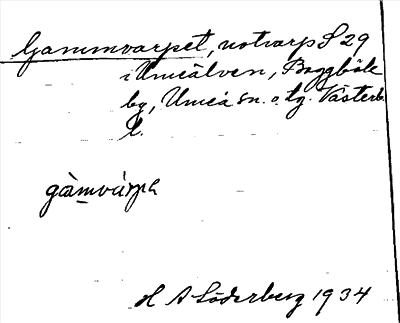 Gammvarpet, notvarp S 29
i Umeälven, Baggböle
by, Umeå sn. o. tg. Västerb.
l.
gàmvárpə
H A Söderberg 1934